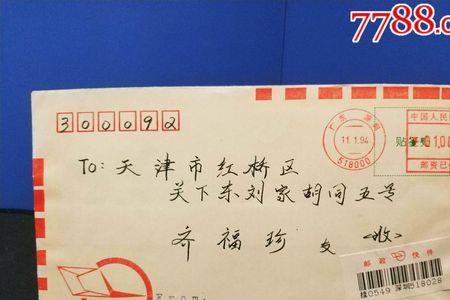 7788.c
300092
广东 深圳
11.1.94
518000
贴签处
中国人民
01.00
邮资已
To: 天津市红桥区
关下东刘家胡同五号
齐福珍 支 <收>
邮政 快件
挂0549 深圳518028